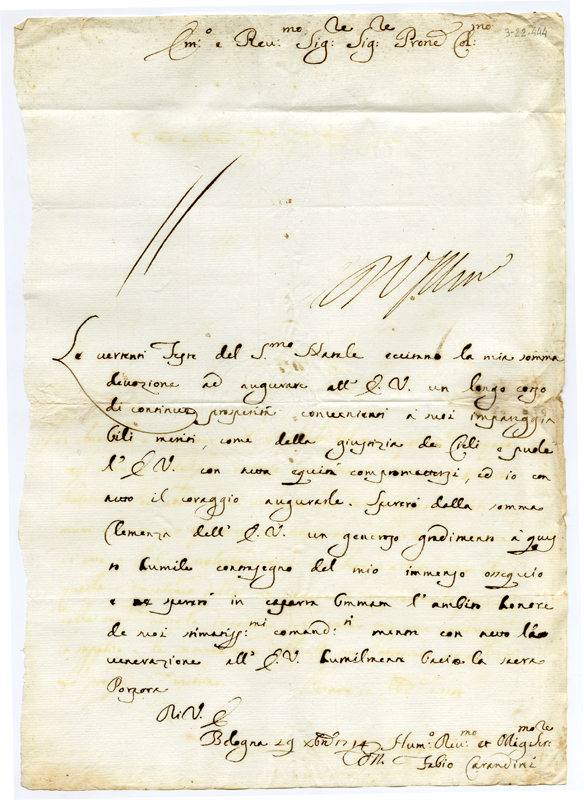 Em.o e Rev.mo Sig.re Sig.re Prone Col.mo
3-22-444
Le vertenti Feste del S.mo Natale eccitano la mia somma
devozione ad augurare all' E. V. un longo corso
di continue prosperità convenienti a' suoi impareggia
bili meriti, come della giustizia de Cieli e puole
l' E. V. con tutta equità compromettersi, ed io con
tutto il coraggio augurarle. Spererò dalla somma
Clemenza dell' E. V. un generoso gradimento à ques
to humile contrasegno del mio immenso ossequio
e sperero in caparra l'ambito honore
de suoi stimatiss.mi comand.ti mentre con tutta la
venerazione all' E. V. humilmente bacio la sacra
Porpora
Di V. E.
Bologna 29 Xbre 1714
Hum.o Rev.mo et Oblig.mo Ser.re
Fabio Carandini